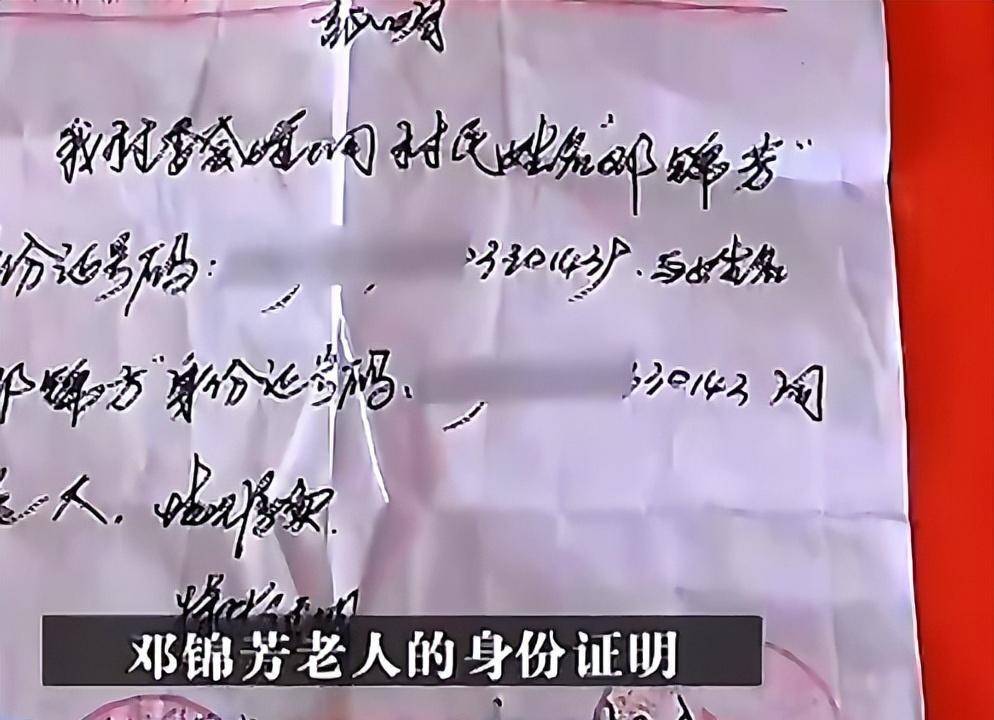 证明
我村委会证明村民姓名"邓锦芳"
份证号码: 3301438.与姓名
邓锦方"身份证号码: 330143 同
一人.情况属实.
特此证明
邓锦芳老人的身份证明